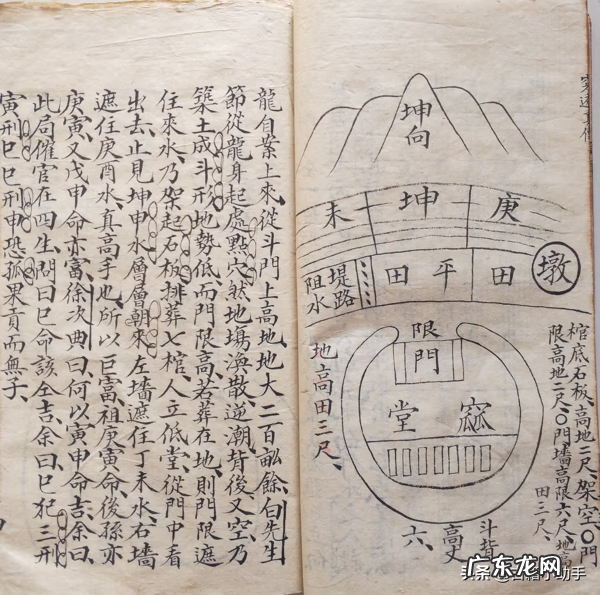 坤向
未
坤
庚
堤路
阻水
平田
田
墩
限門
窳堂
地高田三尺
棺底石板高地二尺架空〇門
限高地二尺〇門墻高限六尺地高
田三尺
斗背
高丈
六
龍自案上來從斗門上高地地大二百畝餘白先生
節從龍身起處點穴然地塲渙散逆潮背後又空乃
築土成斗形地勢低而門限高若葬在地則門限遮
住來水乃架起石板排葬七棺人立低堂從門中看
出去止見坤申水層層朝來左墻遮住丁未水右墻
遮住庚酉水真高手也所以巨富祖庚寅命後孫亦
庚寅又戊申命亦富徐次典曰何以寅申命吉余曰
此局催官在四生問曰巳命該全吉余曰巳犯三刑
寅刑巳巳刑申恐孤果貢而無子
广东龙网